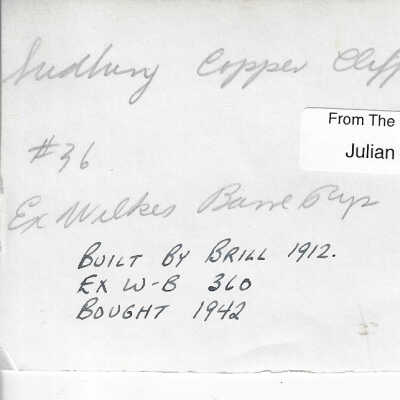 Sudbury Copper Cliff
From The
Julian
#36
Ex Wilkes Barre Rys
BUILT BY BRILL 1912.
EX W-B 360
BOUGHT 1942